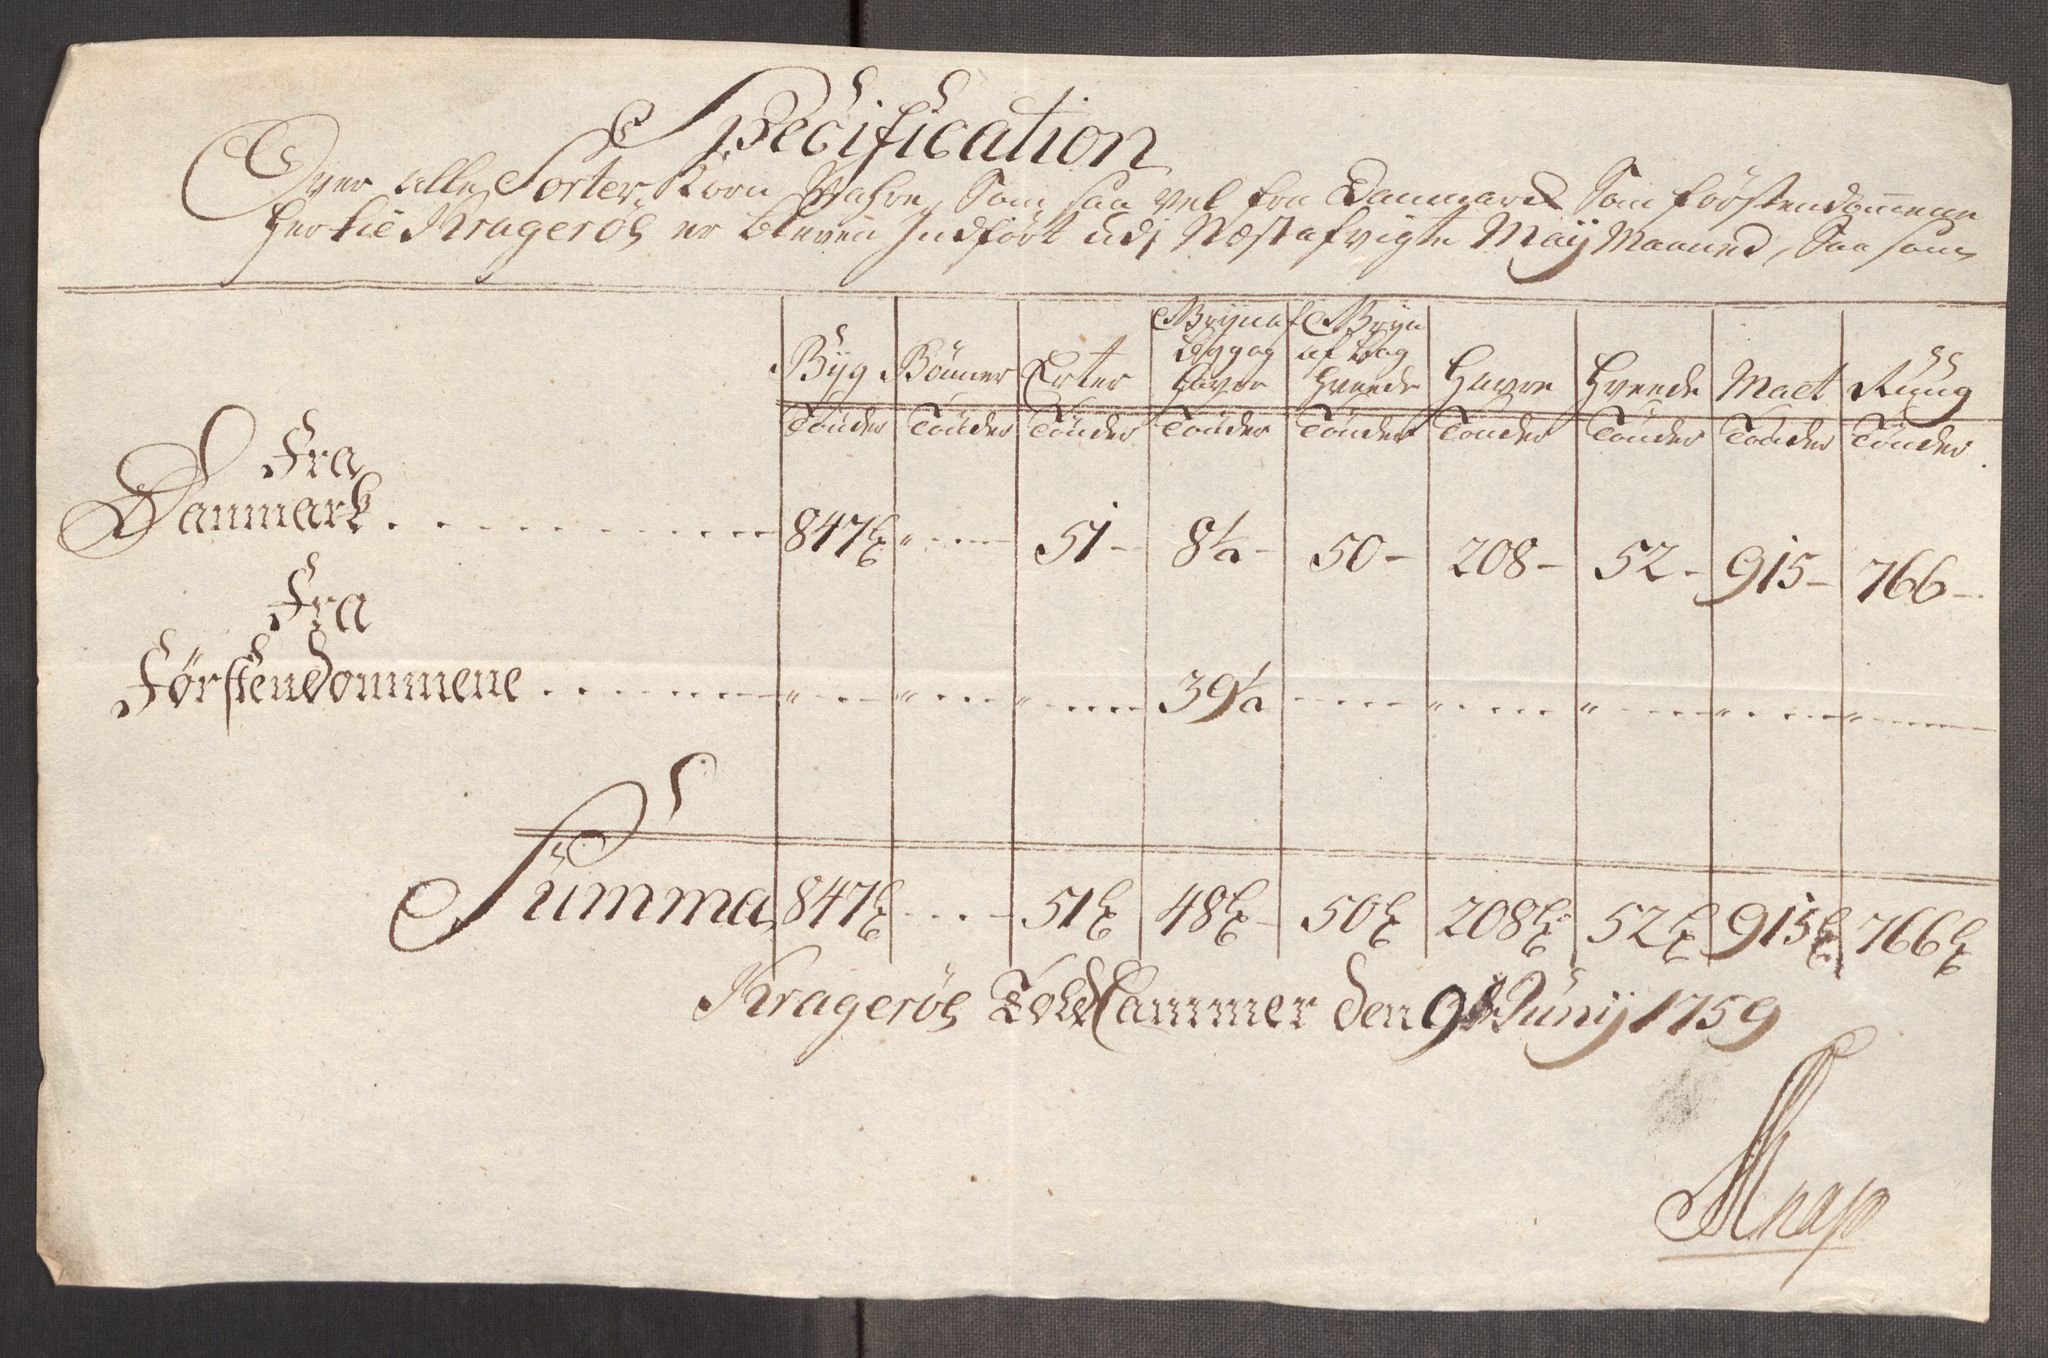 Specification
Over alle Sorter Korn Vahre, Som saa vel fra Danmark Som Förstendommene
her til Krageröe er bleven Indfört udj Næstafvigte Maij Maaned, Saa som
Byg Bönner Erter Gryn af Byg og Havre Gryn af Bog Hvede Havre Hvede Malt Rüüg
Tönder Tönder Tönder Tönder Tönder Tönder Tönder Tönder Tönder
Fra
Danmark 847 51 8½ 50 208 52 915 766
Fra
Förstendommene 39½
Summa 847 51 48 50 208 52 915 766
Krageröe Told Cammer den 9 Junij 1759
Knap